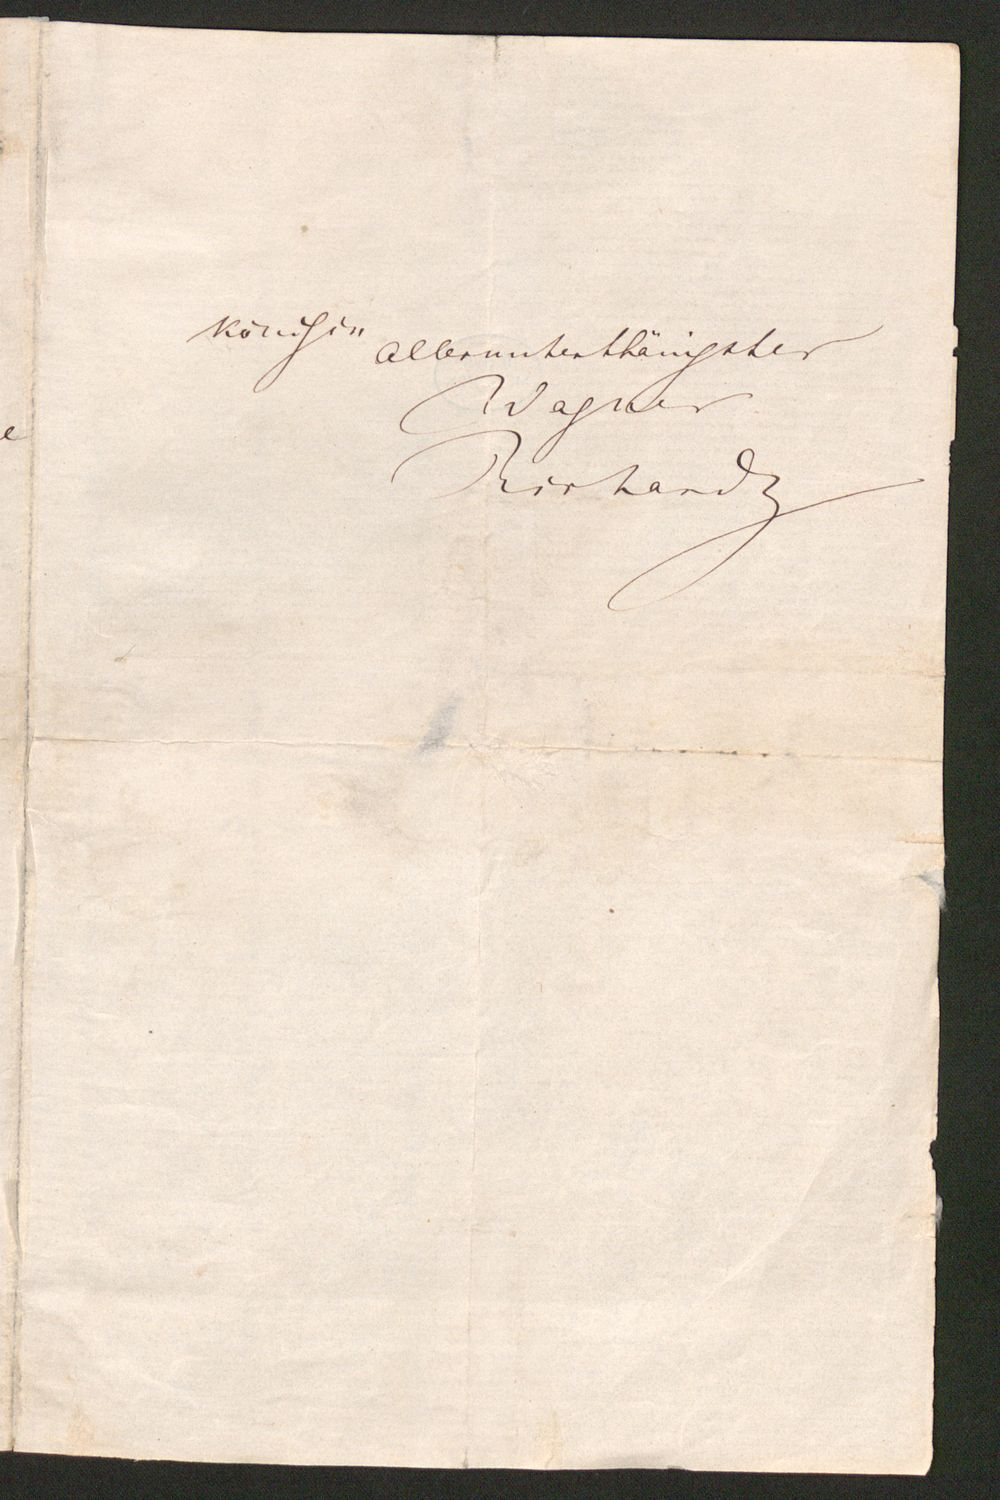 Königin
allerunterthänigster
Wagner
Richard